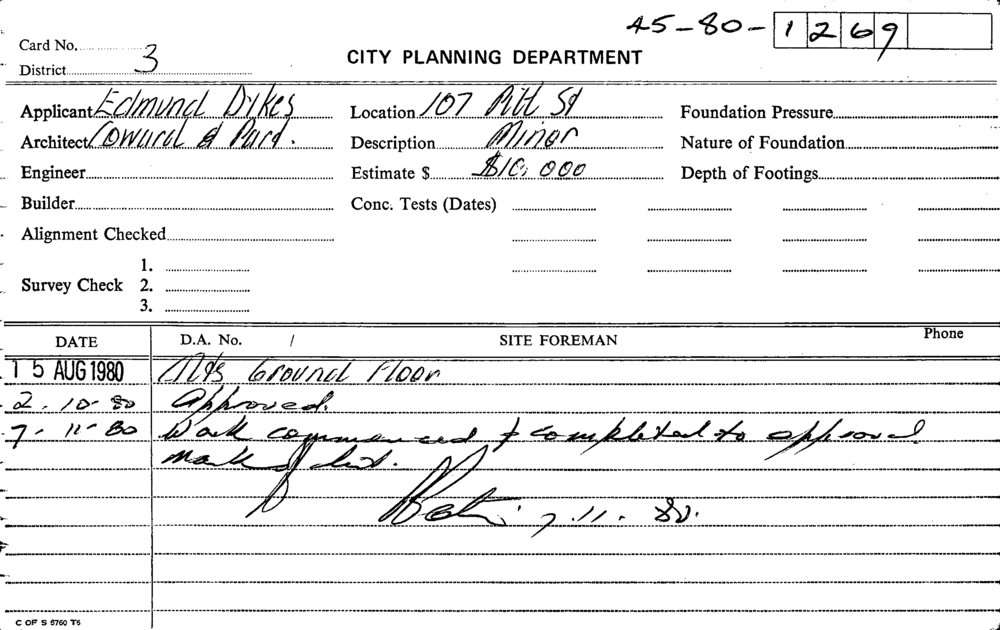 45-80-1269
Card No.
District 3
CITY PLANNING DEPARTMENT
Applicant Edmund Dykes Location 107 Pitt St Foundation Pressure
Architect Coward & Description Minor Nature of Foundation
Engineer Estimate $ $10,000 Depth of Footings
Builder Conc. Tests (Dates)
Alignment Checked
1.
Survey Check 2.
3.
DATE D.A. No. / SITE FOREMAN Phone
15 AUG 1980 Alts Ground Floor
2.10.80 Approved.
7-11-80 Work commenced & completed to approval
7.11.80.
C OF S 6760 T6